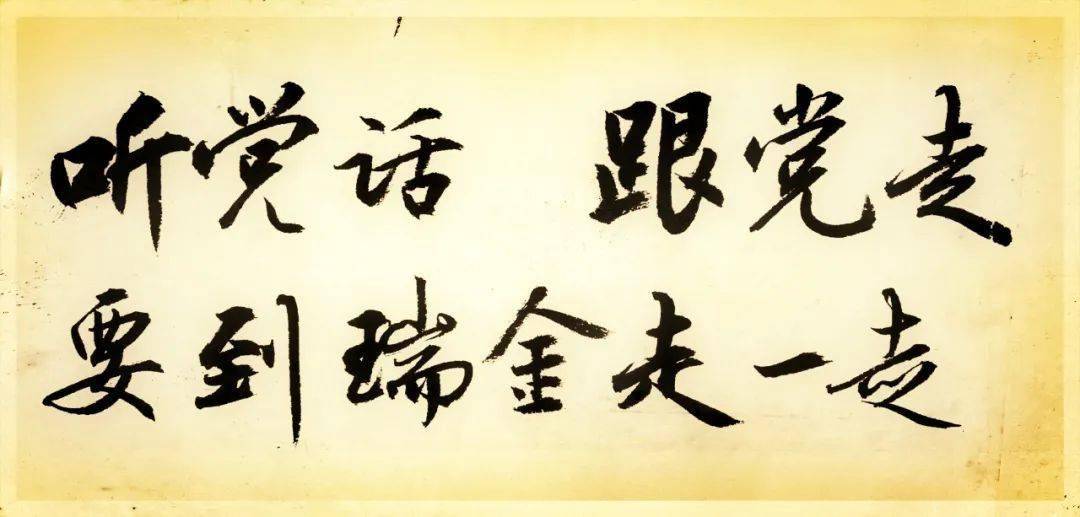 听党话 跟党走
要到瑞金走一走